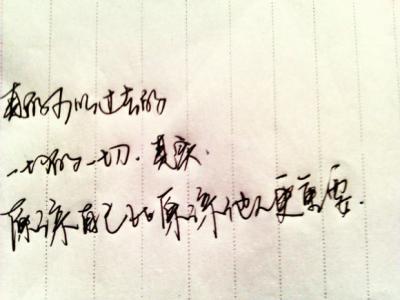 真的可以过去的
一切的一切.其实.
原谅自己比原谅他人更重要.